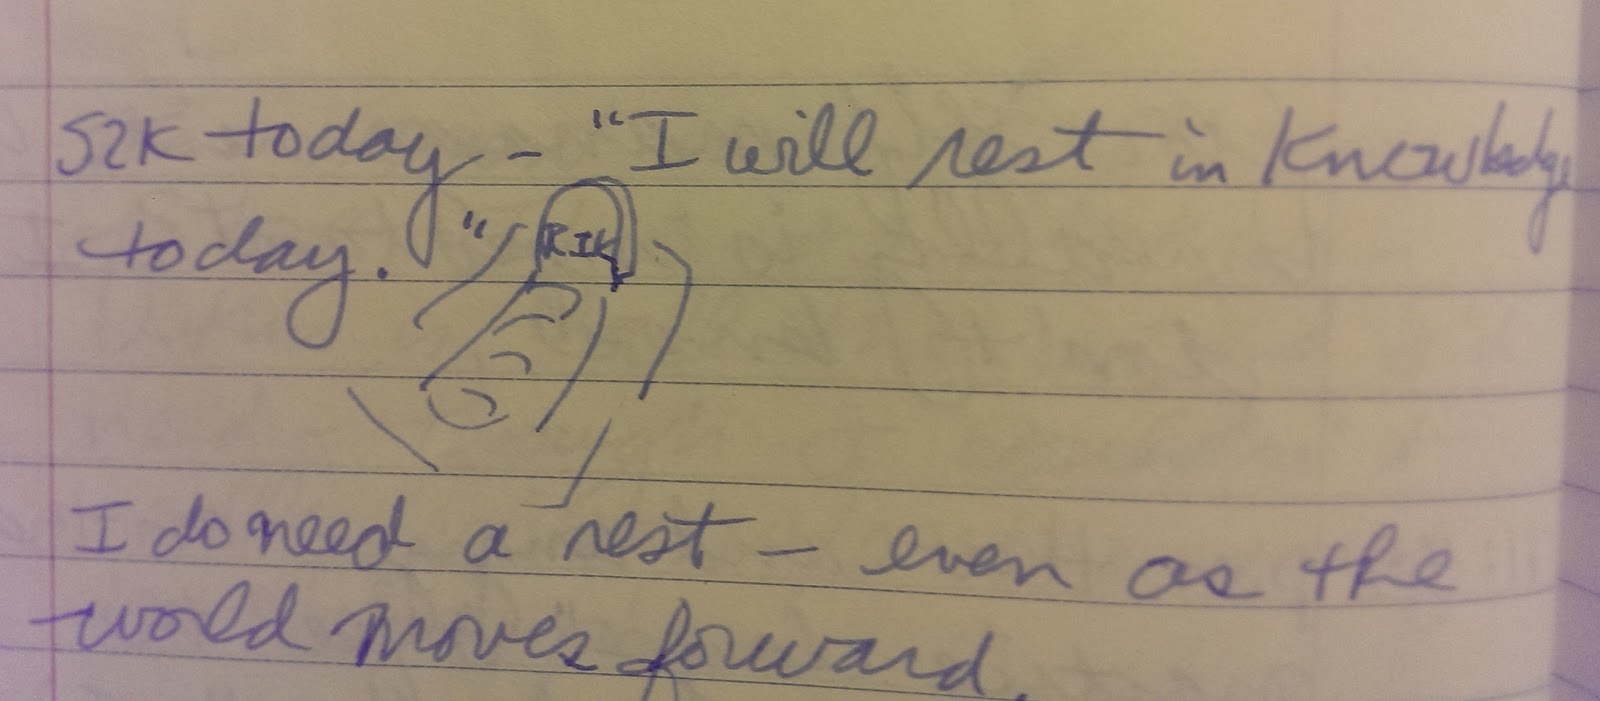 S2K today - "I will rest in Knowledge
today."
RIK
I do need a rest - even as the
world moves forward.